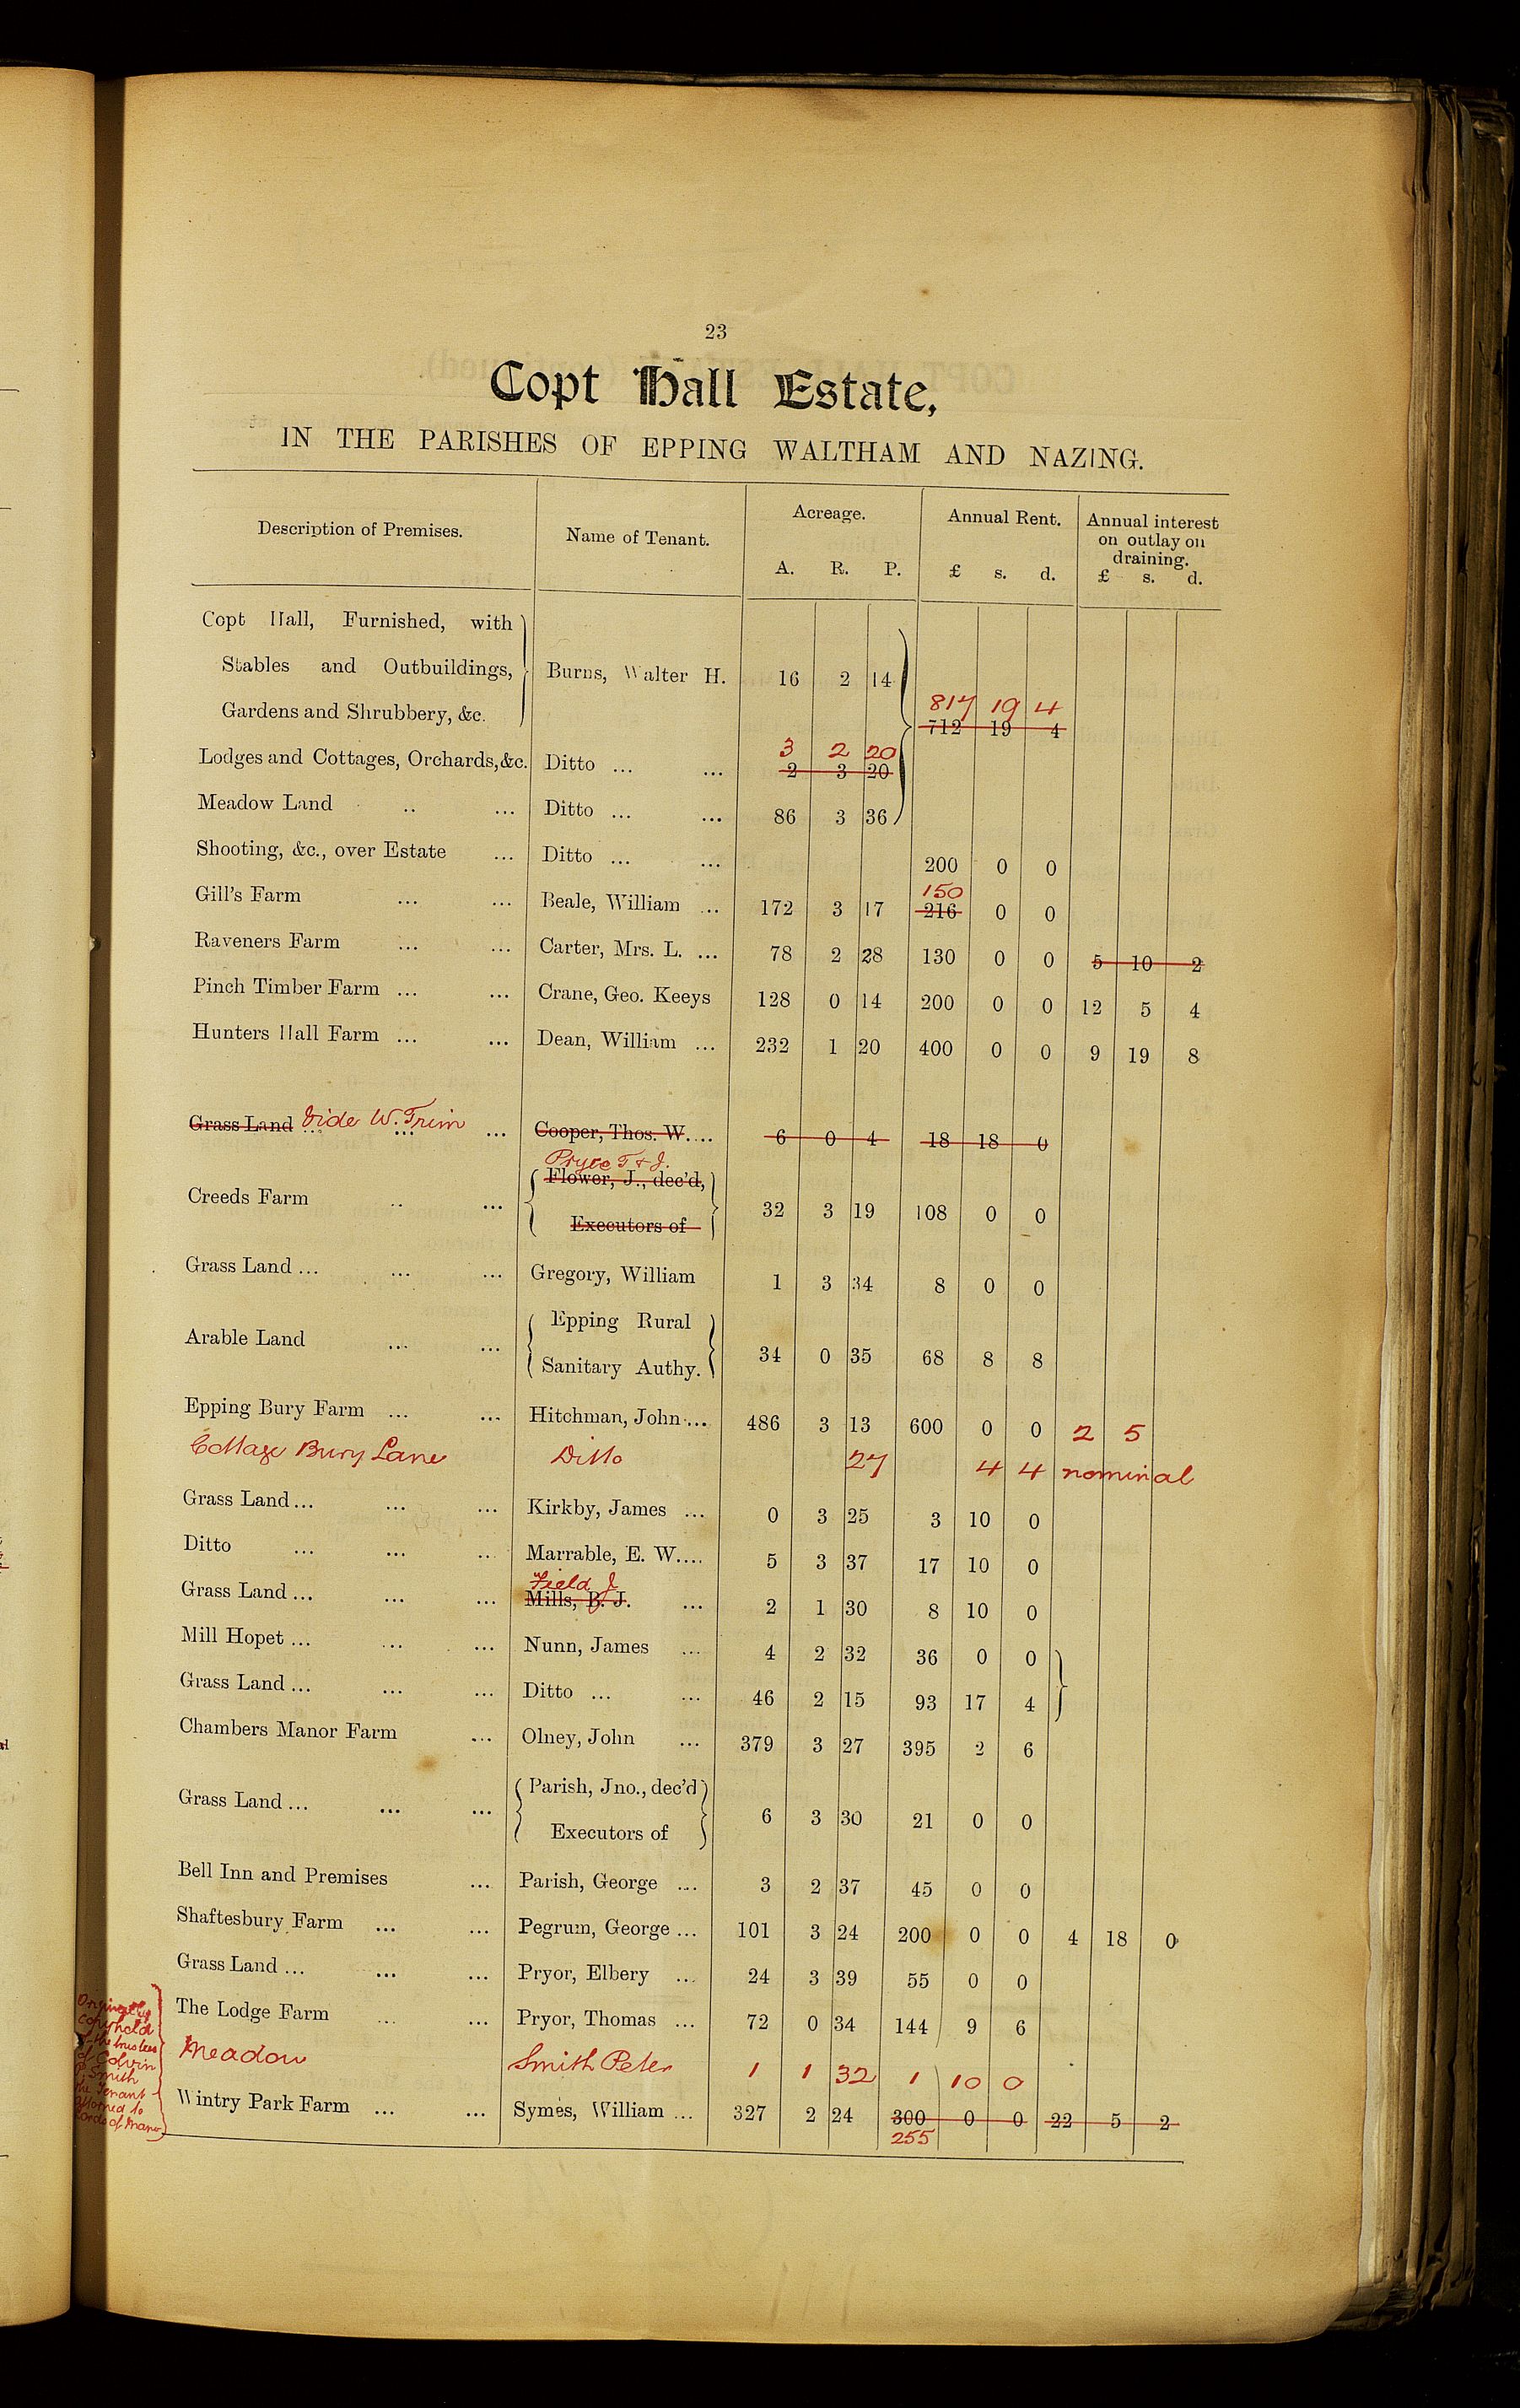 23
Copt Hall Estate,
IN THE PARISHES OF EPPING WALTHAM AND NAZING.
Description of Premises. Name of Tenant. Acreage. Annual Rent. Annual interest on outlay on draining.
A. R. P. £ s. d. £ s. d.
Copt Hall, Furnished, with
Stables and Outbuildings, Burns, Walter H. 16 2 14
Gardens and Shrubbery, &c.
817 19 4
712 19 4
3 2 20
Lodges and Cottages, Orchards, &c. Ditto ... ... 2 3 20
Meadow Land .. ... Ditto ... ... 86 3 36
Shooting, &c., over Estate ... Ditto ... ... 200 0 0
150
Gill's Farm ... ... Beale, William ... 172 3 17 216 0 0
Raveners Farm ... ... Carter, Mrs. L. ... 78 2 28 130 0 0 5 10 2
Pinch Timber Farm ... ... Crane, Geo. Keeys 128 0 14 200 0 0 12 5 4
Hunters Hall Farm ... ... Dean, William ... 232 1 20 400 0 0 9 19 8
Grass Land Vide W. Trim ... ... ... Cooper, Thos. W. ... 6 0 4 18 18 0
Pryce T & J.
Flower, J., dec'd,
Creeds Farm .. ... 32 3 19 108 0 0
Executors of
Grass Land ... ... ... Gregory, William 1 3 34 8 0 0
Epping Rural
Arable Land ... ... 34 0 35 68 8 8
Sanitary Authy.
Epping Bury Farm ... ... Hitchman, John ... 486 3 13 600 0 0 2 5
Cottage Bury Lane Ditto 27 4 4 nominal
Grass Land ... ... ... Kirkby, James ... 0 3 25 3 10 0
Ditto ... ... ... Marrable, E. W. ... 5 3 37 17 10 0
Field J
Grass Land ... ... ... Mills, B. J. ... 2 1 30 8 10 0
Mill Hopet ... ... ... Nunn, James ... 4 2 32 36 0 0
Grass Land ... ... ... Ditto ... ... 46 2 15 93 17 4
Chambers Manor Farm ... Olney, John ... 379 3 27 395 2 6
Parish, Jno., dec'd
Grass Land ... ... ... 6 3 30 21 0 0
Executors of
Bell Inn and Premises ... Parish, George ... 3 2 37 45 0 0
Shaftesbury Farm ... ... Pegrum, George ... 101 3 24 200 0 0 4 18 0
Grass Land ... ... ... Pryor, Elbery ... 24 3 39 55 0 0
The Lodge Farm ... ... Pryor, Thomas ... 72 0 34 144 9 6
Meadow Smith Peter 1 1 32 1 10 0
Wintry Park Farm ... ... Symes, William ... 327 2 24 300 0 0 22 5 2
255
Originally
copyhold
of the trustees
of Colvin
Smith
the Tenant
attorned to
Lords of Manor